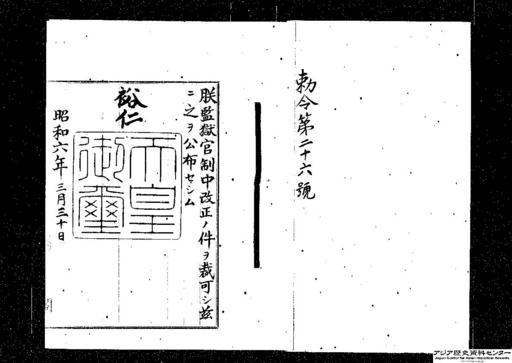 勅令第二十六號
朕監獄官制中改正ノ件ヲ裁可シ玆
ニ之ヲ公布セシム
裕仁
天皇
御璽
昭和六年三月三十日
アジア歴史資料センター
Japan Center for Asian Historical Records